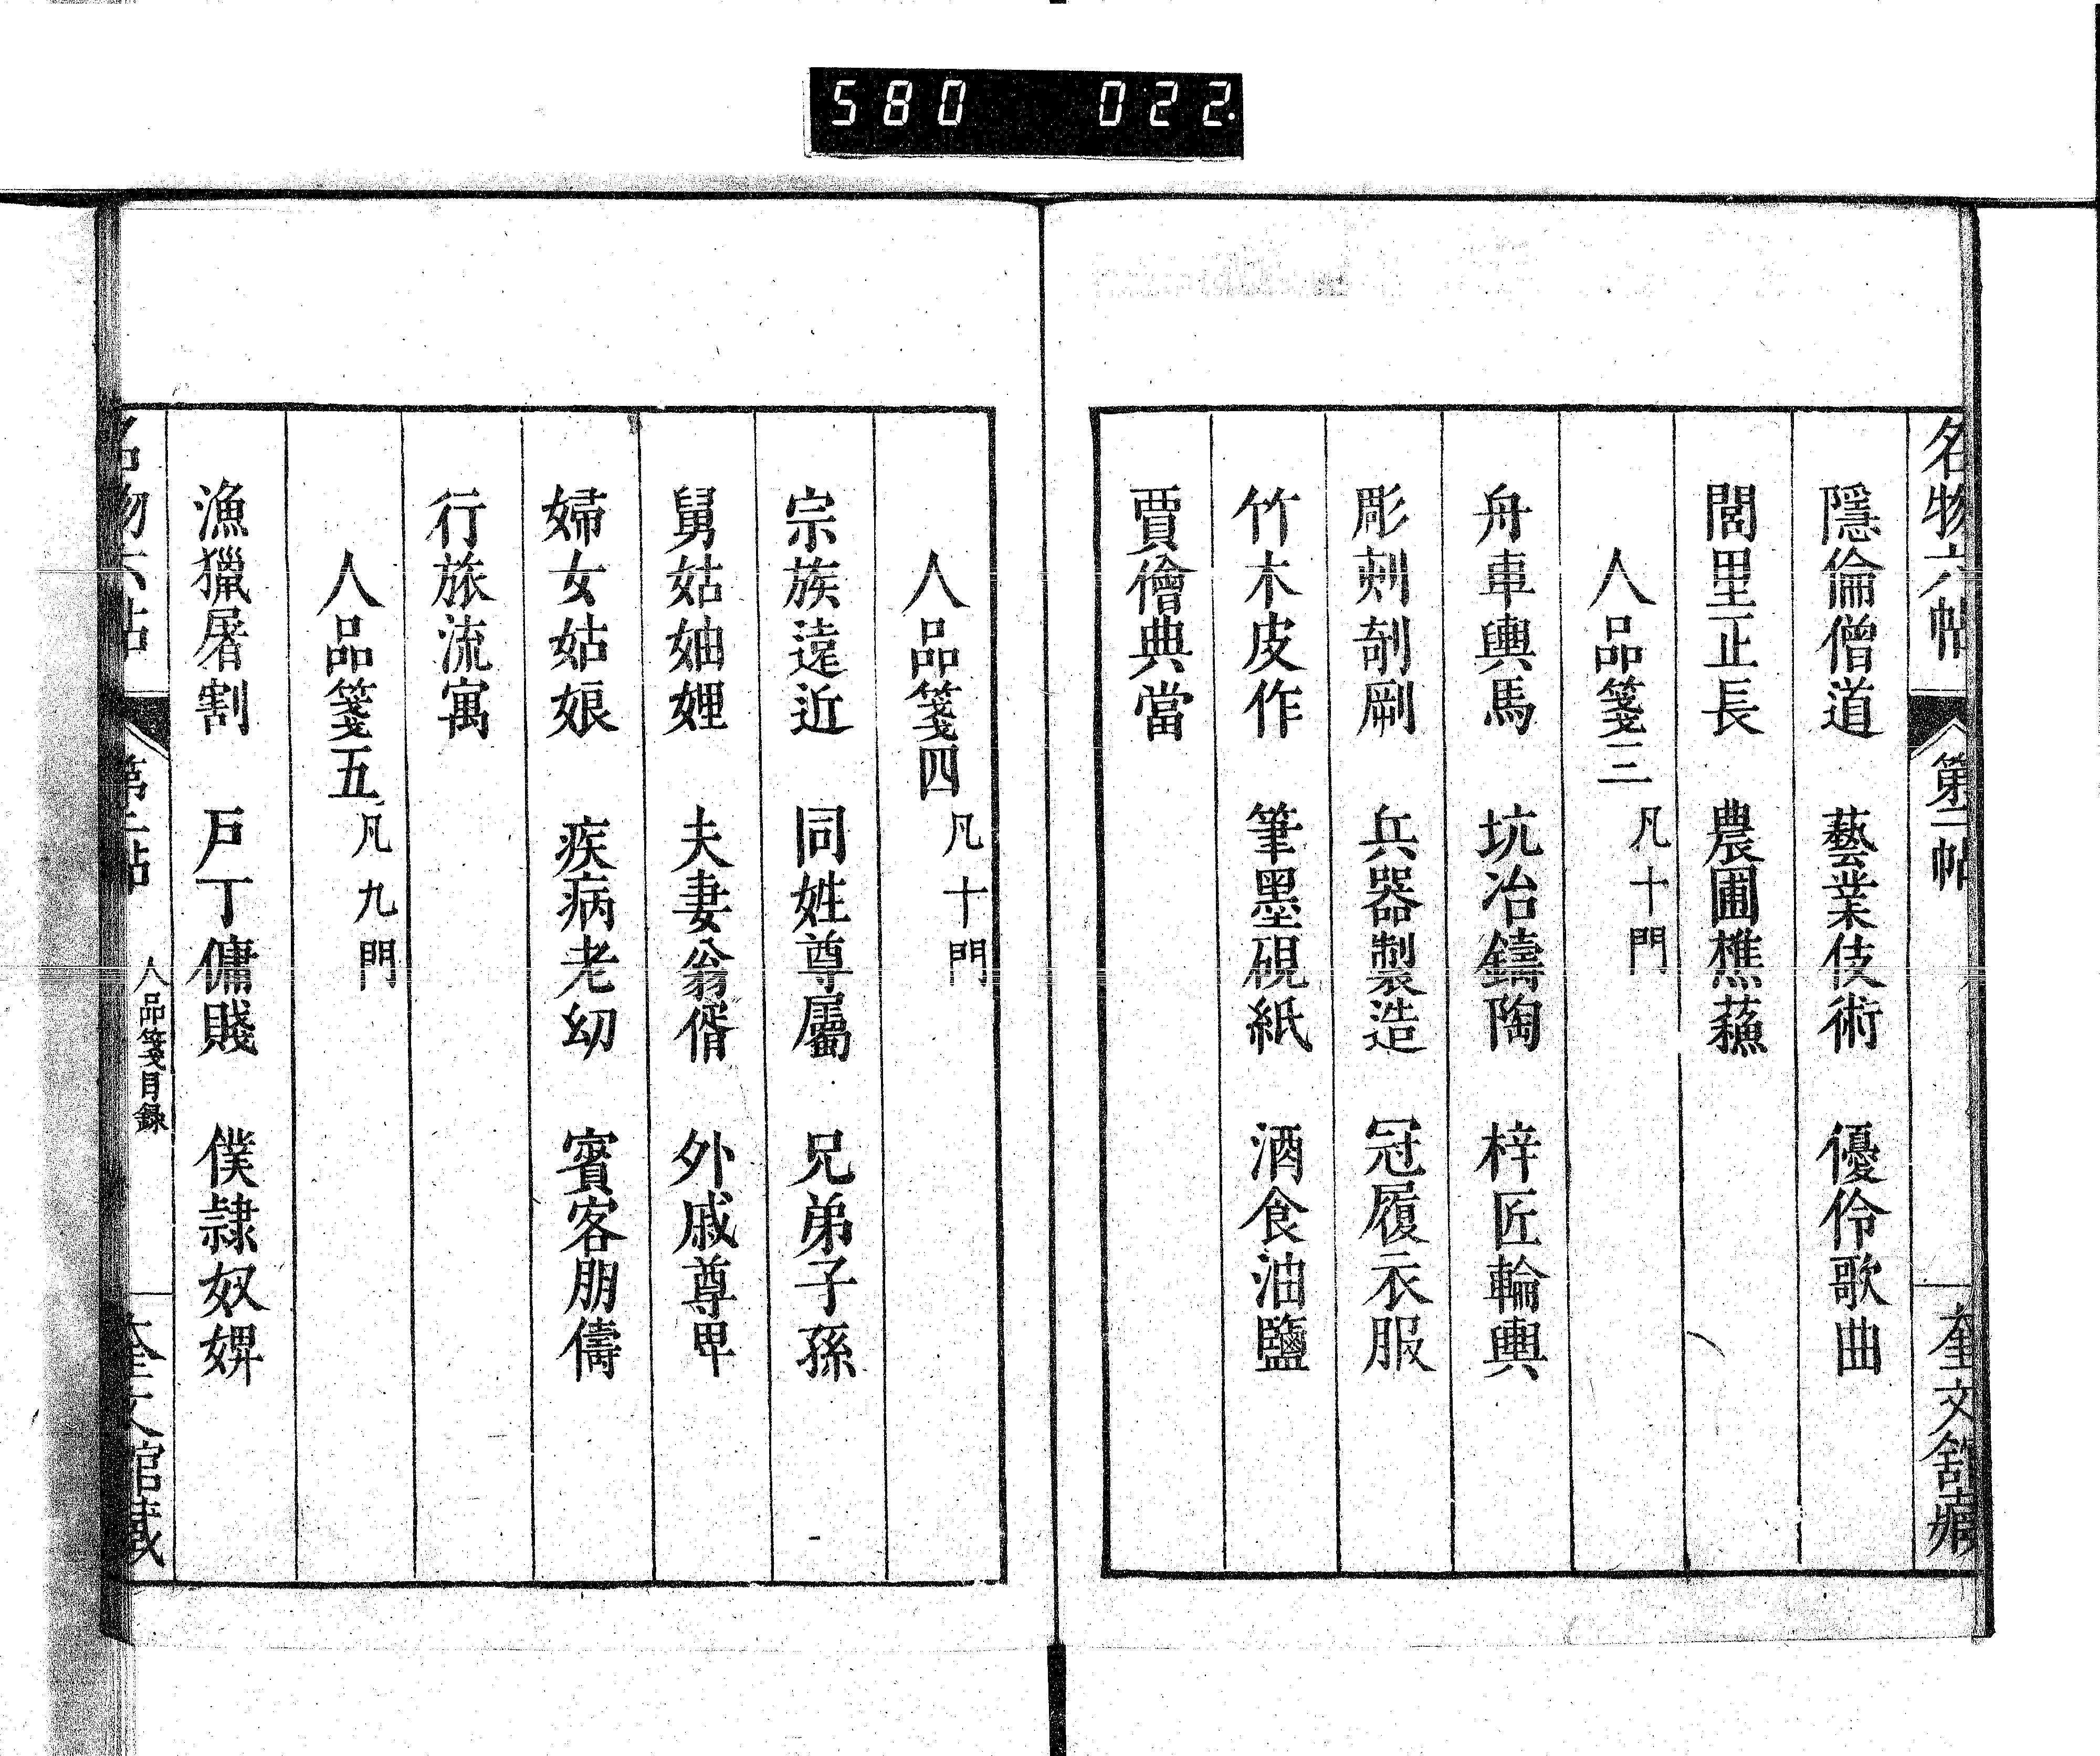 580 022.
名物六帖 第二帖 奎文舘藏
隱倫僧道 藝業伎術 優伶歌曲
閭里正長 農圃樵蘓
人品箋三 凡十門
舟車輿馬 坑冶鑄陶 梓匠輪輿
彫刻剞劂 兵器製造 冠履衣服
竹木皮作 筆墨硯紙 酒食油鹽
賈儈典當
人品箋四 凡十門
宗族遠近 同姓尊屬 兄弟子孫
舅姑妯娌 夫妻翁偦 外戚尊卑
婦女姑娘 疾病老幼 賓客朋儔
行旅流寓
人品箋五 凡九門
漁獵屠割 戶丁傭賤 僕隷奴婢
名物六帖 第二帖 人品箋目録 奎文館藏